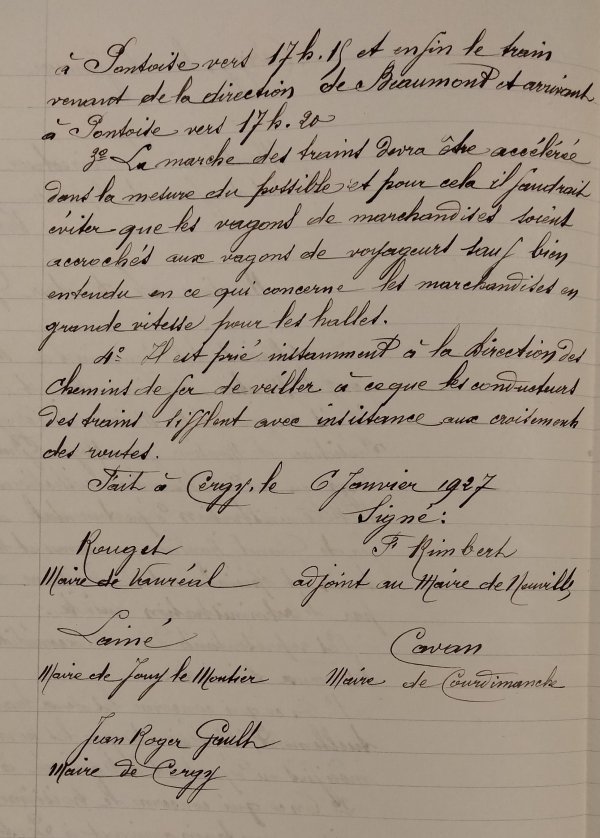 à Pontoise vers 17h.15 et enfin le train
venant de la direction de Beaumont et arrivant
à Pontoise vers 17h.20
3º La marche des trains devra être accélérée
dans la mesure du possible et pour cela il faudrait
éviter que les vagons de marchandises soient
accrochés aux vagons de voyageurs sauf bien
entendu en ce qui concerne les marchandises en
grande vitesse pour les halles.
4º Il est prié instamment à la Direction des
Chemins de fer de veiller à ce que les conducteurs
des trains sifflent avec insistance aux croisements
des routes.
Fait à Cergy, le 6 Janvier 1927
Signé:
Rouget F Rimbert
Maire de Vauréal adjoint au Maire de Neuville
Lainé Cavan
Maire de Jouy le Moutier Maire de Courdimanche
Jean Roger Gault
Maire de Cergy